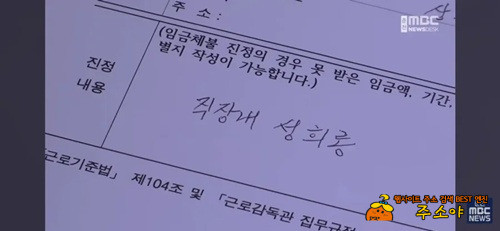 주 소 :
MBC
NEWSDESK
(임금체불 진정의 경우 못 받은 임금액, 기간,
별지 작성이 가능합니다.)
진정
내용
직장내 성희롱
「근로기준법」 제104조 및 「근로감독관 집무규정
웹사이트 주소 검색 BEST 엔진
주소야
MBC
NEWS